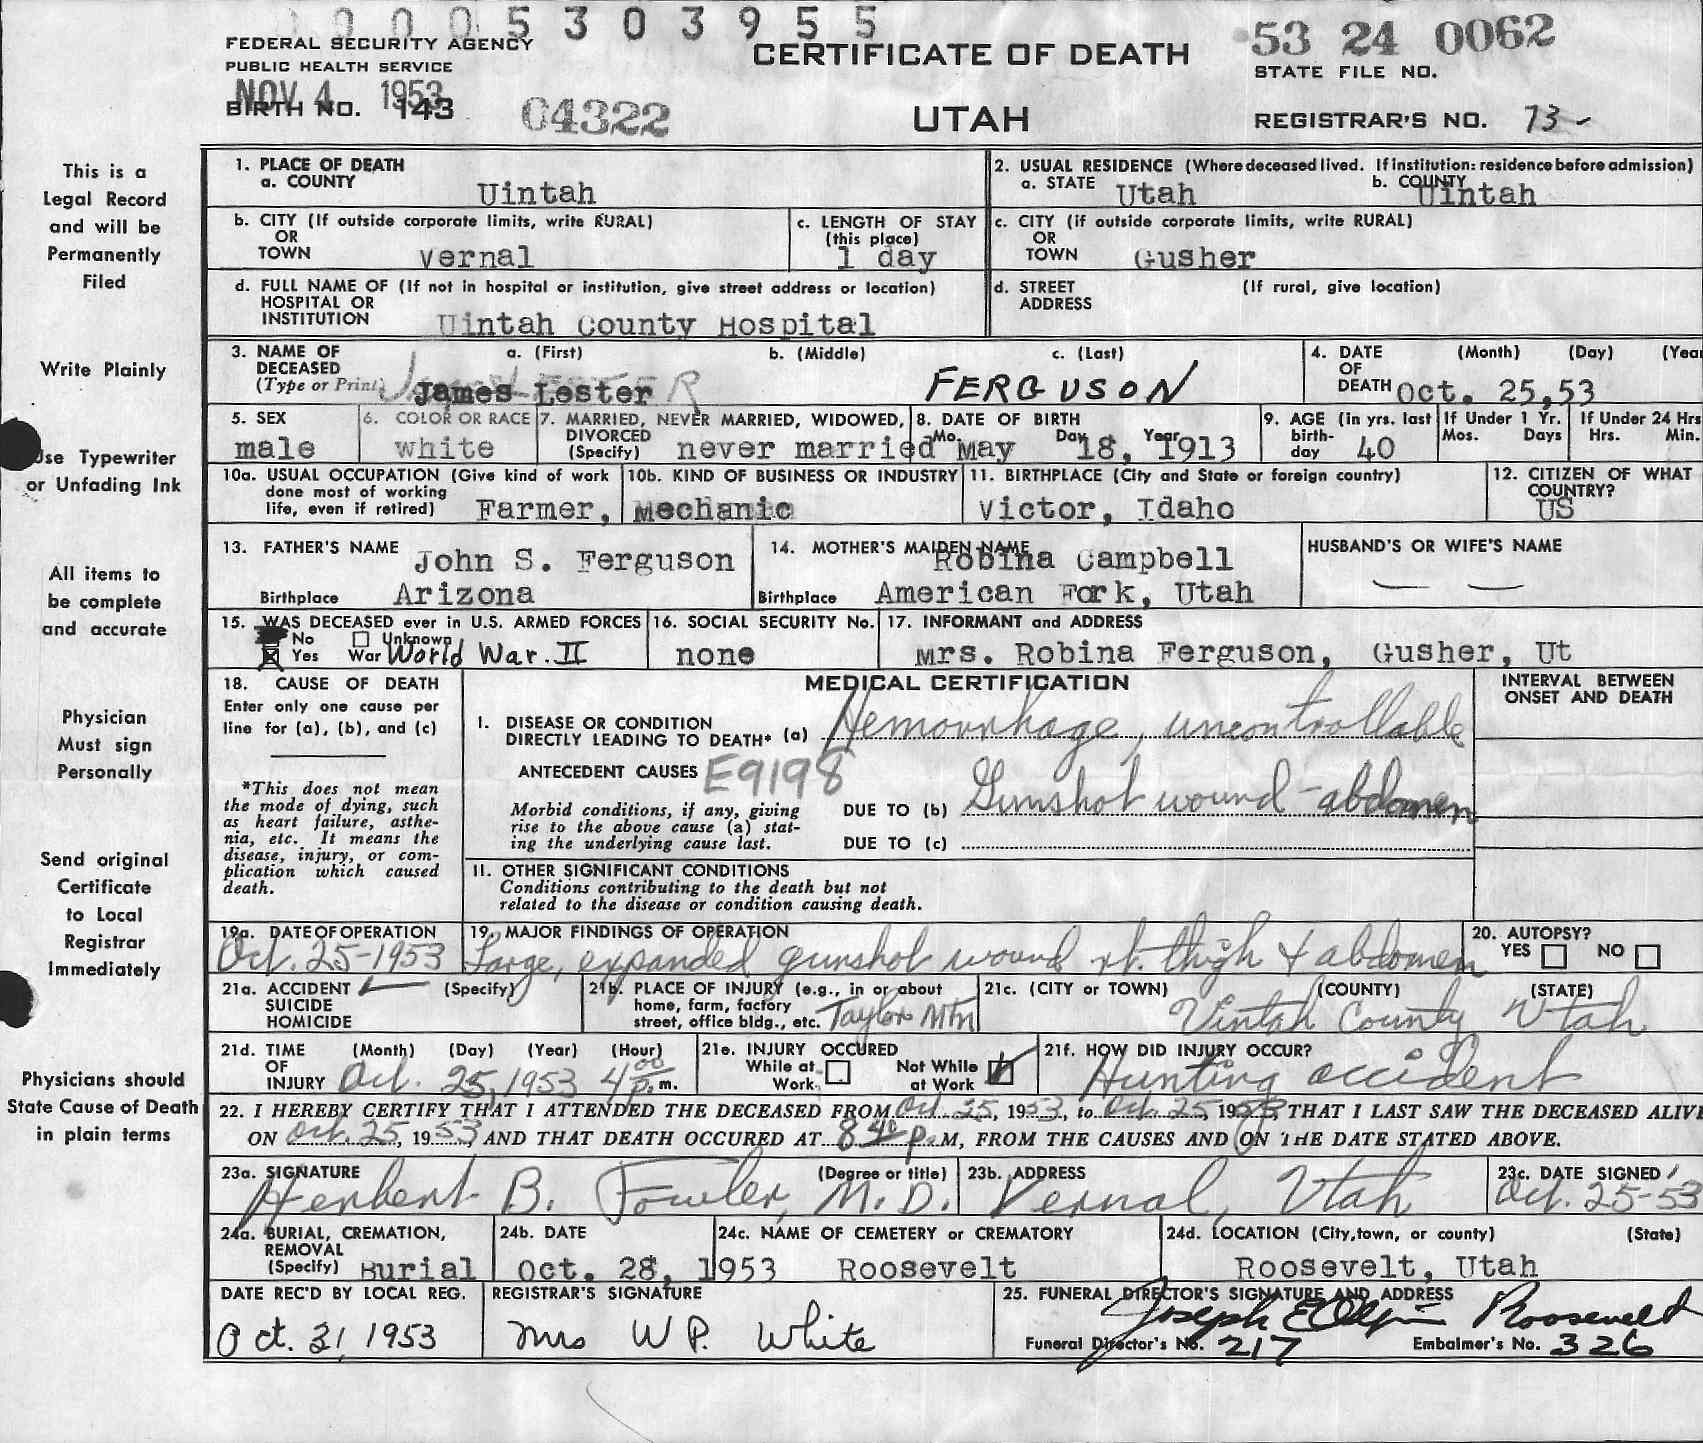 0005303955
FEDERAL SECURITY AGENCY
PUBLIC HEALTH SERVICE
CERTIFICATE OF DEATH
53 24 0062
STATE FILE NO.
NOV 4 1953
BIRTH NO. 143
04322
UTAH
REGISTRAR'S NO. 73-
This is a
Legal Record
and will be
Permanently
Filed
Write Plainly
Use Typewriter
or Unfading Ink
All items to
be complete
and accurate
Physician
Must sign
Personally
Send original
Certificate
to Local
Registrar
Immediately
Physicians should
State Cause of Death
in plain terms
1. PLACE OF DEATH
a. COUNTY Uintah
2. USUAL RESIDENCE (Where deceased lived. If institution: residence before admission)
a. STATE Utah b. COUNTY Uintah
b. CITY (If outside corporate limits, write RURAL)
OR
TOWN Vernal
c. LENGTH OF STAY
(this place)
1 day
c. CITY (if outside corporate limits, write RURAL)
OR
TOWN Gusher
d. FULL NAME OF (If not in hospital or institution, give street address or location)
HOSPITAL OR
INSTITUTION Uintah County Hospital
d. STREET (If rural, give location)
ADDRESS
3. NAME OF a. (First) b. (Middle) c. (Last)
DECEASED
(Type or Print) James Lester FERGUSON
4. DATE (Month) (Day) (Year
OF
DEATH Oct. 25,53
5. SEX
male
6. COLOR OR RACE
white
7. MARRIED, NEVER MARRIED, WIDOWED,
DIVORCED
(Specify) never married
8. DATE OF BIRTH
Mo. May Day 18, Year 1913
9. AGE (in yrs. last
birth-
day 40
If Under 1 Yr.
Mos. Days
If Under 24 Hrs
Hrs. Min.
10a. USUAL OCCUPATION (Give kind of work
done most of working
life, even if retired) Farmer,
10b. KIND OF BUSINESS OR INDUSTRY
Mechanic
11. BIRTHPLACE (City and State or foreign country)
Victor, Idaho
12. CITIZEN OF WHAT
COUNTRY?
US
13. FATHER'S NAME John S. Ferguson
Birthplace Arizona
14. MOTHER'S MAIDEN NAME Robina Campbell
Birthplace American Fork, Utah
HUSBAND'S OR WIFE'S NAME
15. WAS DECEASED ever in U.S. ARMED FORCES
No Unknown
Yes War World War. II
16. SOCIAL SECURITY No.
none
17. INFORMANT and ADDRESS
Mrs. Robina Ferguson, Gusher, Ut
18. CAUSE OF DEATH
Enter only one cause per
line for (a), (b), and (c)
*This does not mean
the mode of dying, such
as heart failure, asthe-
nia, etc. It means the
disease, injury, or com-
plication which caused
death.
MEDICAL CERTIFICATION
INTERVAL BETWEEN
ONSET AND DEATH
I. DISEASE OR CONDITION
DIRECTLY LEADING TO DEATH* (a) Hemorrhage, uncontrollable
ANTECEDENT CAUSES E9198
Morbid conditions, if any, giving
rise to the above cause (a) stat-
ing the underlying cause last.
DUE TO (b) Gunshot wound-abdomen
DUE TO (c)
II. OTHER SIGNIFICANT CONDITIONS
Conditions contributing to the death but not
related to the disease or condition causing death.
19a. DATE OF OPERATION
Oct. 25-1953
19. MAJOR FINDINGS OF OPERATION
Large, expanded gunshot wound rt. thigh & abdomen
20. AUTOPSY?
YES NO
21a. ACCIDENT (Specify)
SUICIDE
HOMICIDE
21b. PLACE OF INJURY (e.g., in or about
home, farm, factory
street, office bldg., etc. Taylor Mtn
21c. (CITY or TOWN) (COUNTY) (STATE)
Uintah County Utah
21d. TIME (Month) (Day) (Year) (Hour)
OF
INJURY Oct. 25, 1953 4 00 p. m.
21e. INJURY OCCURED
While at Not While
Work at Work
21f. HOW DID INJURY OCCUR?
Hunting accident
22. I HEREBY CERTIFY THAT I ATTENDED THE DECEASED FROM Oct 25, 1953, to Oct. 25, 1953, THAT I LAST SAW THE DECEASED ALIVE
ON Oct. 25, 1953 AND THAT DEATH OCCURED AT 8 40 P.M, FROM THE CAUSES AND ON THE DATE STATED ABOVE.
23a. SIGNATURE (Degree or title)
Herbert B. Fowler, M.D.
23b. ADDRESS
Vernal, Utah
23c. DATE SIGNED
Oct. 25-53
24a. BURIAL, CREMATION,
REMOVAL
(Specify) Burial
24b. DATE
Oct. 28, 1953
24c. NAME OF CEMETERY or CREMATORY
Roosevelt
24d. LOCATION (City, town, or county) (State)
Roosevelt, Utah
DATE REC'D BY LOCAL REG.
Oct. 31, 1953
REGISTRAR'S SIGNATURE
Mrs W P. White
25. FUNERAL DIRECTOR'S SIGNATURE AND ADDRESS
Joseph E Olpin Roosevelt
Funeral Director's No. 217 Embalmer's No. 326